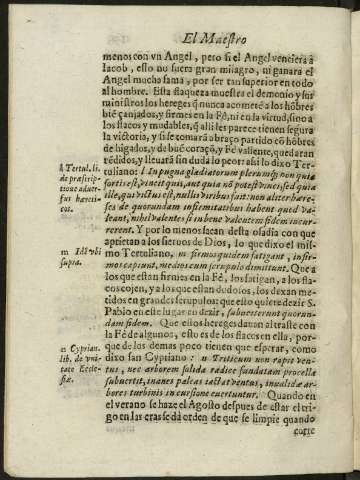 El Maestro
menos con vn Angel, pero si el Angel venciera à
Iacob, esto no fuera gran milagro, ni ganara el
Angel mucha fama, por ser tan superior en todo
al hombre. Esta flaqueza muestra el demonio y sus
ministros los hereges q̃ nunca acometẽ a los hõbres
biẽ çanjados, y firmes en la Fé, ni en la virtud, sino a
los flacos y mudables, q̃ alli les parece tienen segura
la victoria, y si se tomará a braço partido cõ hõbres
de hidalgos, y de buẽ coraçõ, y Fé valiente, quedarã
rẽdidos, y lleuarã sin duda lo peor: assi lo dixo Ter-
tuliano: l In pugna gladiatorum plerumq; non quia
fortis est, vincit quis, aut quia nõ potest vinci, sed quia
ille, qui victus est, nullis viribus fuit: non aliter hære-
ses de quorundam infirmitatibus habent quod va-
leant, nihil valentes si in bene valentem fidem incur-
rerent. Y por lo menos sacan desta osadia con que
aprietan a los sieruos de Dios, lo que dixo el mis-
mo Tertuliano, m firmos quidem fatigant, infir-
mos capiunt, medios cum scrupulo dimittunt. Que a
los que estan firmes en la Fé, los fatigan, a los fla-
cos cojen, y a los que estan dudosos, los dexan me-
tidos en grandes scrupulos: que esto quiere dezir S.
Pablo en este lugar en dezir, subuerterunt quorun-
dam fidem. Que estos hereges daran al traste con
la Fé de algunos, esto es de los flacos en ella, por-
que de los demas poco tienen que esperar, como
dixo san Cypriano: n Triticum non rapit ven-
tus, nec arborem solida radice fundatam procella
subuertit, inanes paleas iactat ventus, inualidæ ar-
bores turbinis incursione euertuntur. Quando en
el verano se haze el Agosto despues de estar el tri-
go en las eras se dà orden de que se limpie quando
corre
l Tertul. li.
de præscrip-
tione aduer-
sus hæreti-
cos.
m Idẽ vbi
supra.
n Cyprian.
lib. de vni-
tate Eccle-
siæ.